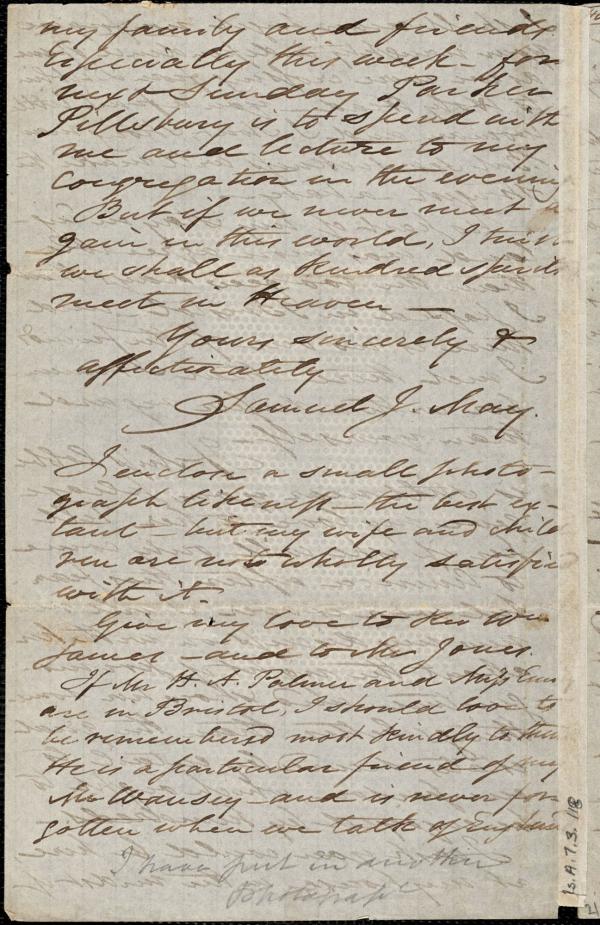 my family and friends
Especially this week - for
next Sunday Parker
Pillsbury is to spend with
me and lecture to my
congregation in the evening
But if we never meet a
gain in this world, I think
we shall as kindred spirits
meet in Heaven —
Yours sincerely &
affectionately
Samuel J. May.
I enclose a small photo-
graph likeness - the best ex-
tant - but my wife and child
ren are not wholly satisfied
with it.
Give my love to Rev Wm
James - and to Mr Jones.
If Mr H. A. Palmer and Miss
are in Bristol, I should love to
be remembered most kindly to them
He is a particular friend of my
Mr Wansey - and is never for
gotten when we talk of England
I have put in another
Photograph